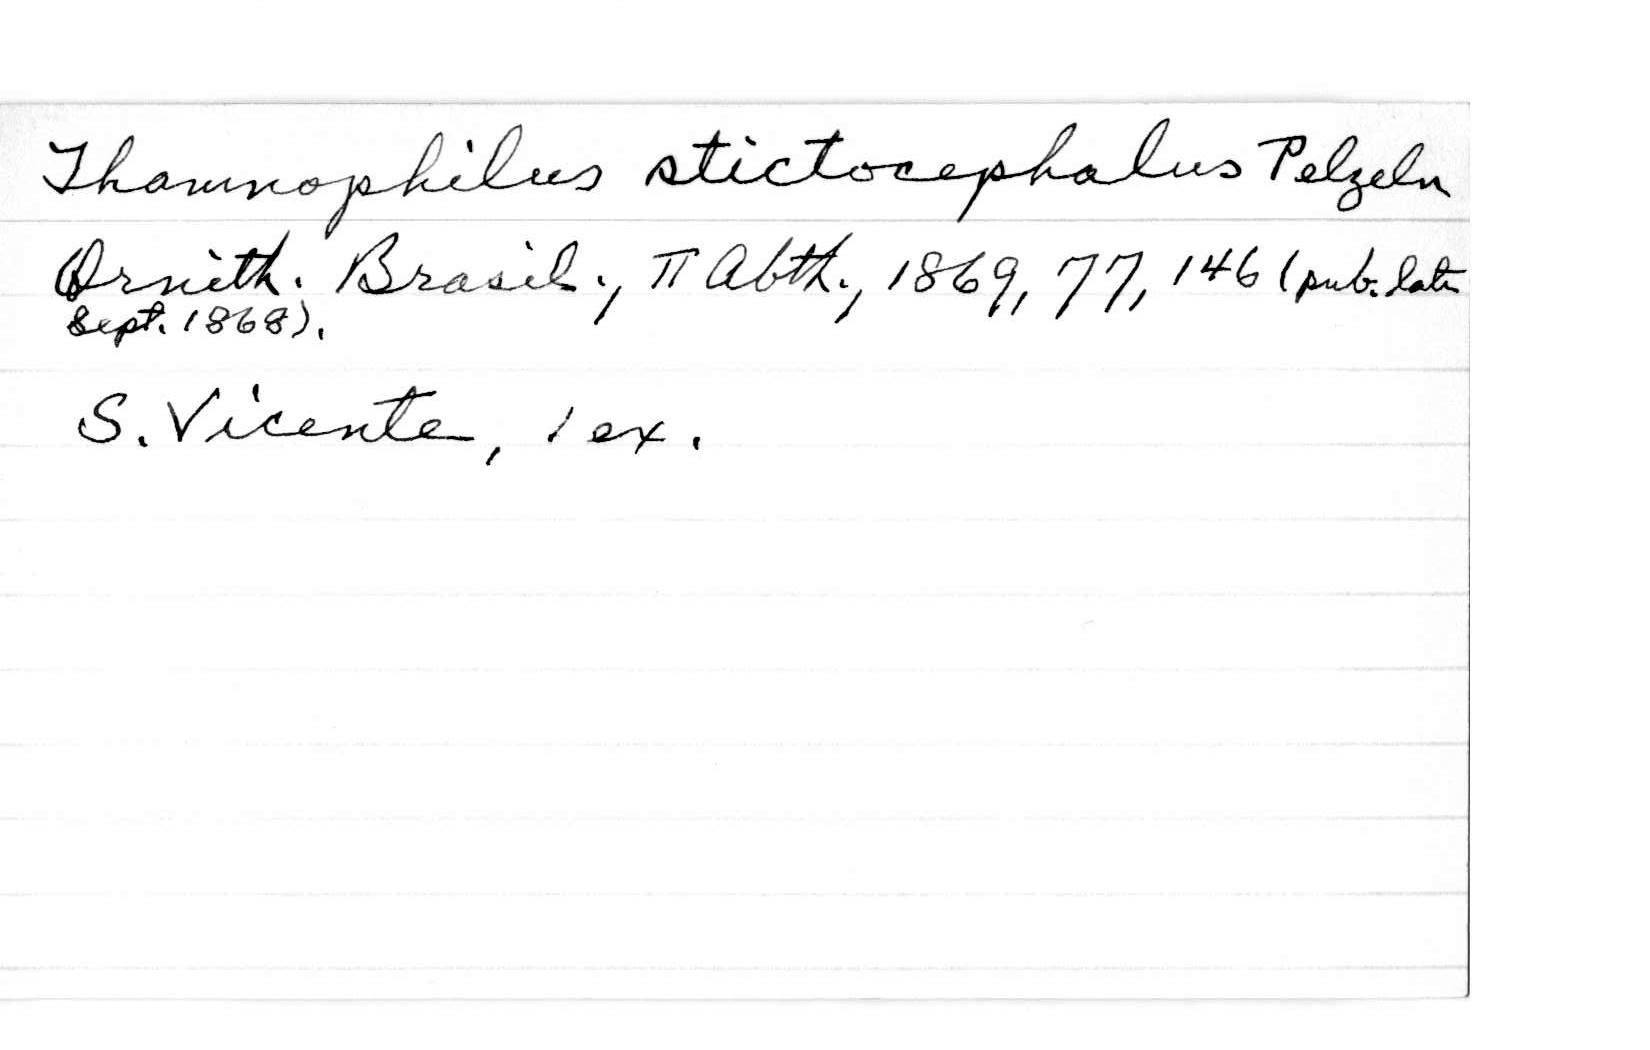 Thamnophilus stictocephalus Pelzeln
Ornith. Brasil., II Abth., 1869, 77, 146 (pub. late
Sept. 1868).
S. Vicente, 1 ex.